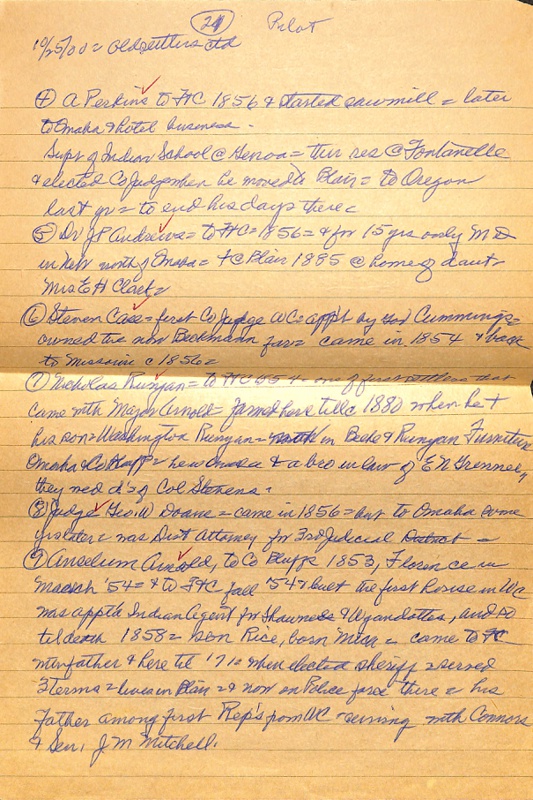 24 Pilot
10/25/00 = Oldsettlers ctd
④ A Perkins to FtC 1856 & started sawmill = later
to Omaha & hotel business -
Supt of Indian School @ Genoa = then res @ Fontanelle
& elected Co Judge when he moved to Blair = to Oregon
last yr = to end his days there =
⑤ Dr JP Andrews = to FtC = 1856 = & for 15 yrs only MD
in Neb north of Omaha = + @ Blair 1885 @ home of daut -
Mrs E H Clark =
⑥ Steven Case = first Co Judge WC = app't by Gov Cummings =
owned the now Beckmann farm = came in 1854 & back
to Missouri c 1856 =
⑦ Nicholas Runyan = to FtC 55 & one of first settlers that
came with Major Arnold = farmed here til c 1880 when he &
his son = Washington Runyan = in Beebe & Runyan Furniture
Omaha & Co = he & a bro in law of E N Grennee,
they med d's of Col Stevens -
⑧ Judge Geo. W Doane = came in 1856 = but to Omaha some
yrs later = was Dist Attorney for 3rd Judicial District =
⑨ Anselum Arnold, to Co Bluffs 1853, Florence in
March '54 = & to FtC fall '54 & built the first house in WC
was appt'd Indian Agent for Shawnees & Wyandottes, and so
til death 1858 = son Rice, born Mich = came to FtC
with father & here til '71 = when elected sheriff & served
3 terms = lives in Blair = & now on Police force there = his
Father among first Rep's from WC - serving with Connors
& Sen. J M Mitchell.